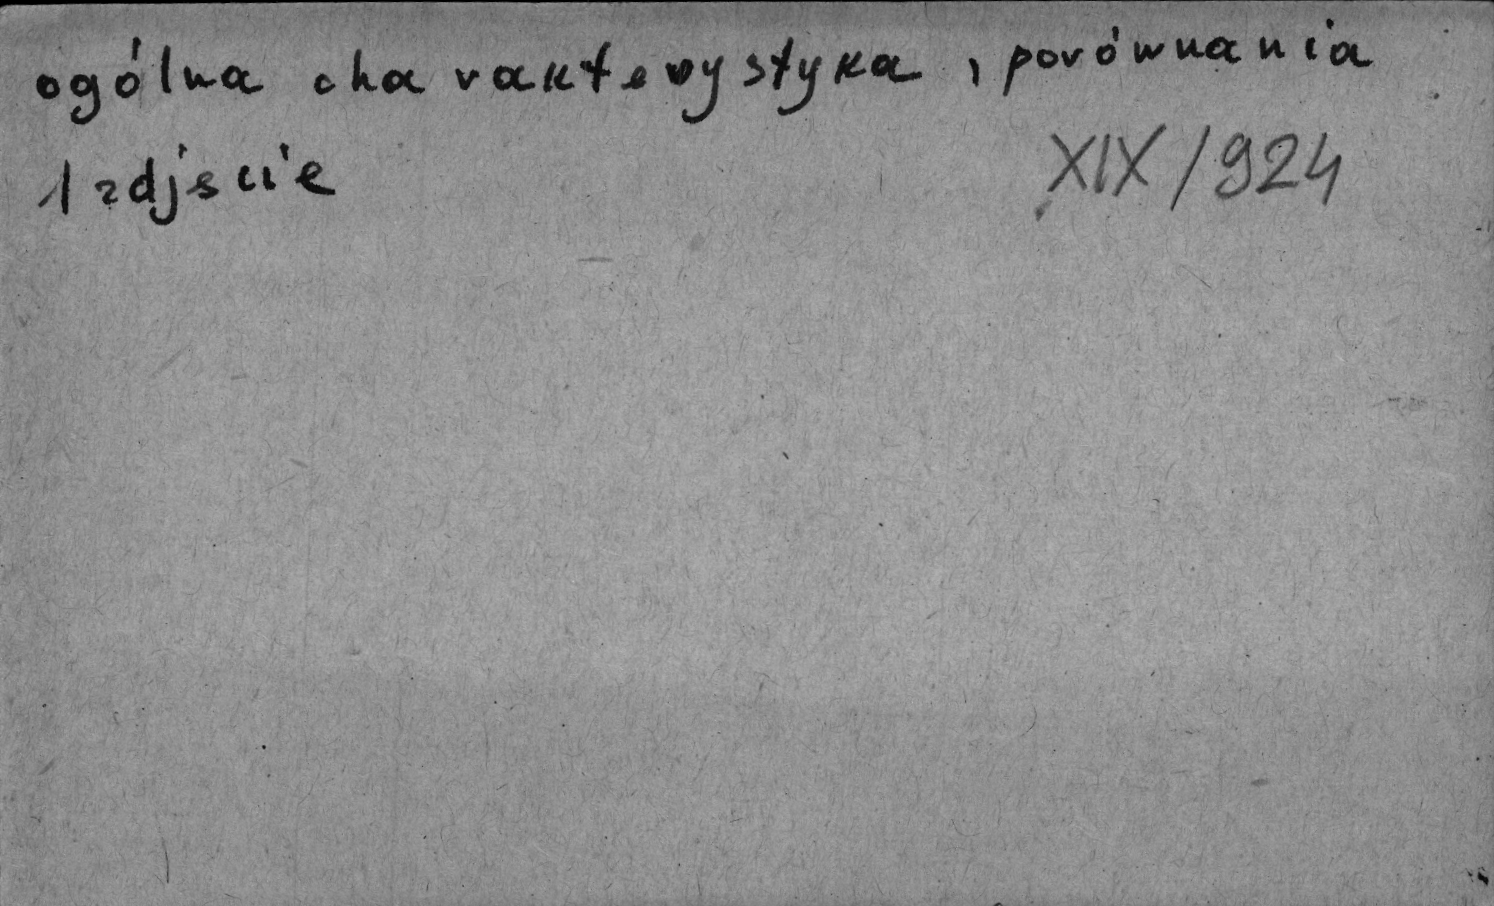 ogólna charakterystyka, porównania
1 zdjęcie
XIX/924